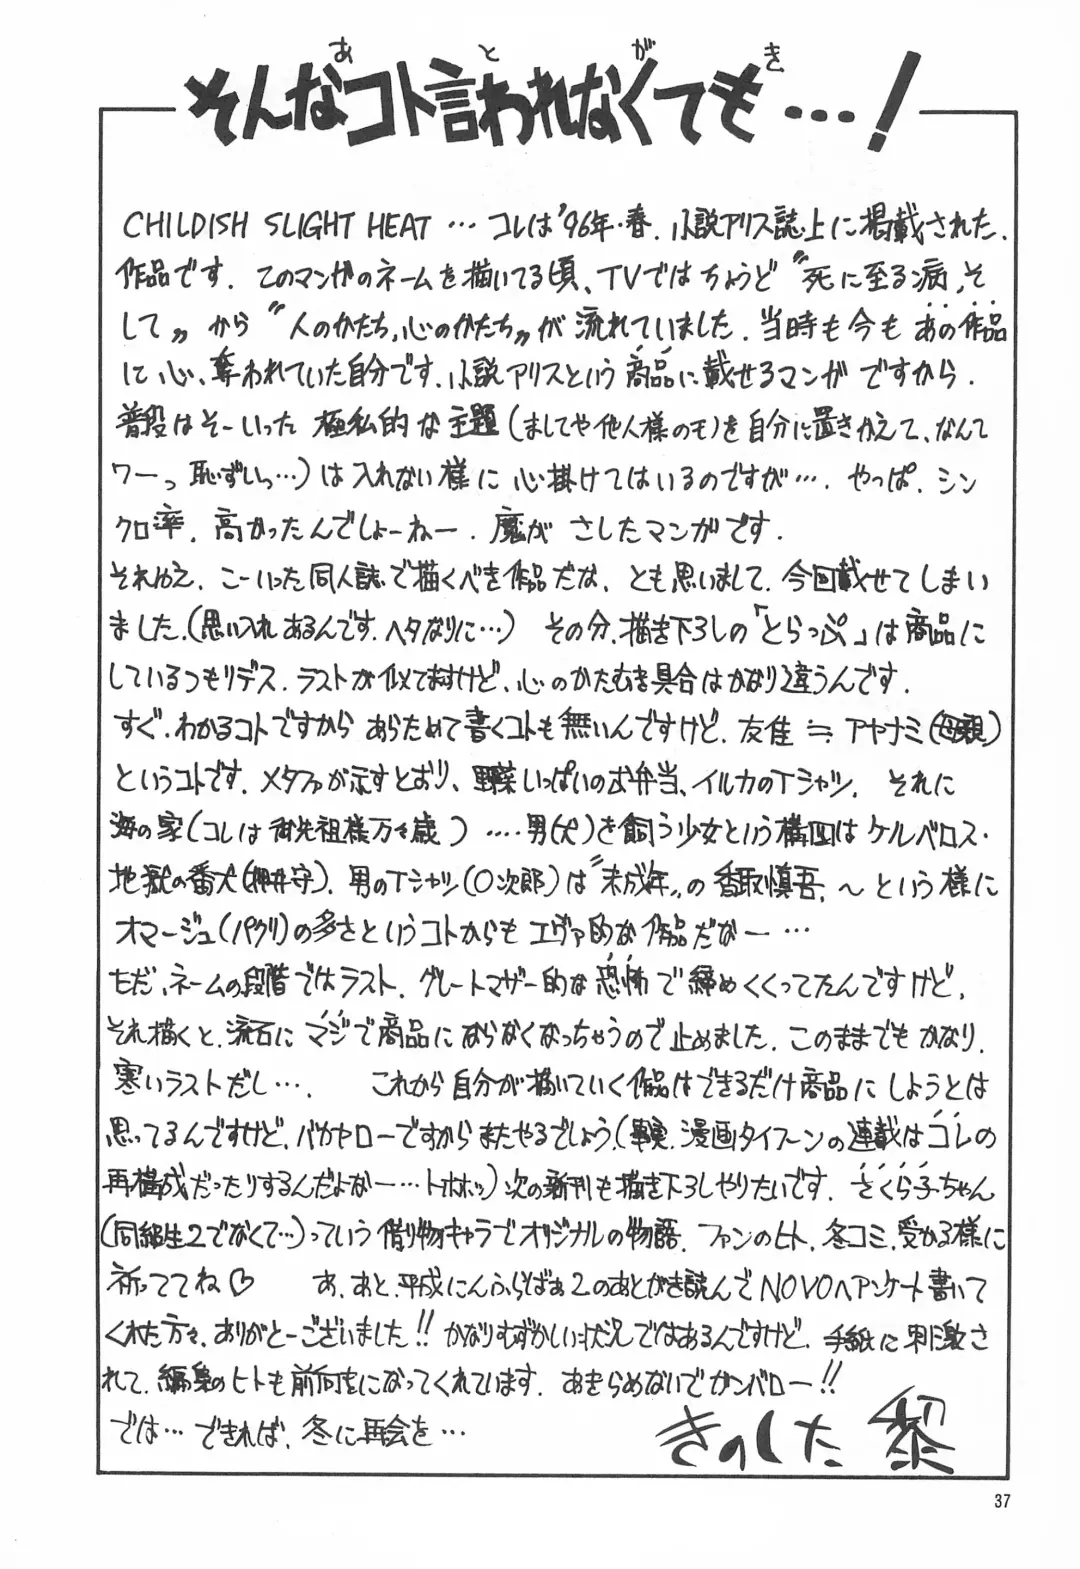 あとがき
そんなコト言われなくても…!
CHILDISH SLIGHT HEAT … コレは'96年・春. 小説アリス誌上に掲載された.
作品です. このマンガのネームを描いてる頃、TVではちょうど〝死に至る病、そ
して〟から〝人のかたち、心のかたち〟が流れていました. 当時も今もあの作品
に心、奪われていた自分です. 小説アリスという商品に載せるマンガですから.
普段はそーいった極私的な主題(ましてや他人様のモノを自分に置きかえて、なんて
ワーっ恥ずしっ…)は入れない様に心掛けてはいるのですが…. やっぱ. シン
クロ率. 高かったんでしょーねー. 魔がさしたマンガです.
それゆえ. こーいった同人誌で描くべき作品だな. とも思いまして. 今回載せてしまい
ました.(思い入れあるんです. ヘタなりに…) その分. 描き下ろしの「とらっぷ」は商品に
しているつもりデス. ラストが似てますけど、心のかたむき具合はかなり違うんです.
すぐ. わかるコトですからあらためて書くコトも無いんですけど. 友佳≒アヤナミ(母親)
というコトです. メタファが示すとおり、野菜いっぱいのお弁当、イルカのTシャツ. それに
海の家(コレは御先祖様万々歳)….男(犬)を飼う少女という構図はケルベロス・
地獄の番犬(押井守). 男のTシャツ(〇次郎)は〝未成年〟の香取慎吾. 〜という様に
オマージュ(パクリ)の多さというコトからもエヴァ的な作品だなー…
ただ、ネームの段階ではラスト. グレートマザー的な恐怖で締めくくってたんですけど.
それ描くと. 流石にマジで商品にならなくなっちゃうので止めました. このままでもかなり.
寒いラストだし…. これから自分が描いていく作品はできるだけ商品にしようとは
思ってるんですけど. バカヤローですからまたやるでしょう.(事実. 漫画タイフーンの連載はコレの
再構成だったりするんだよなー…トホホッ) 次の新刊も描き下ろしやりたいです. さくら子ちゃん
(同級生2でなくて…)っていう借り物キャラでオリジナルの物語. ファンのヒト. 冬コミ. 受かる様に
祈っててね♡ あ. あと. 平成にんふらばぁ2のあとがき読んでNOVOへアンケート書いて
くれた方々. ありがとーございました!! かなりむずかしい状況ではあるんですけど. 手紙に刺激さ
れて. 編集のヒトも前向きになってくれています. あきらめないでガンバロー!!
では… できれば. 冬に再会を…
きのした 黎
37